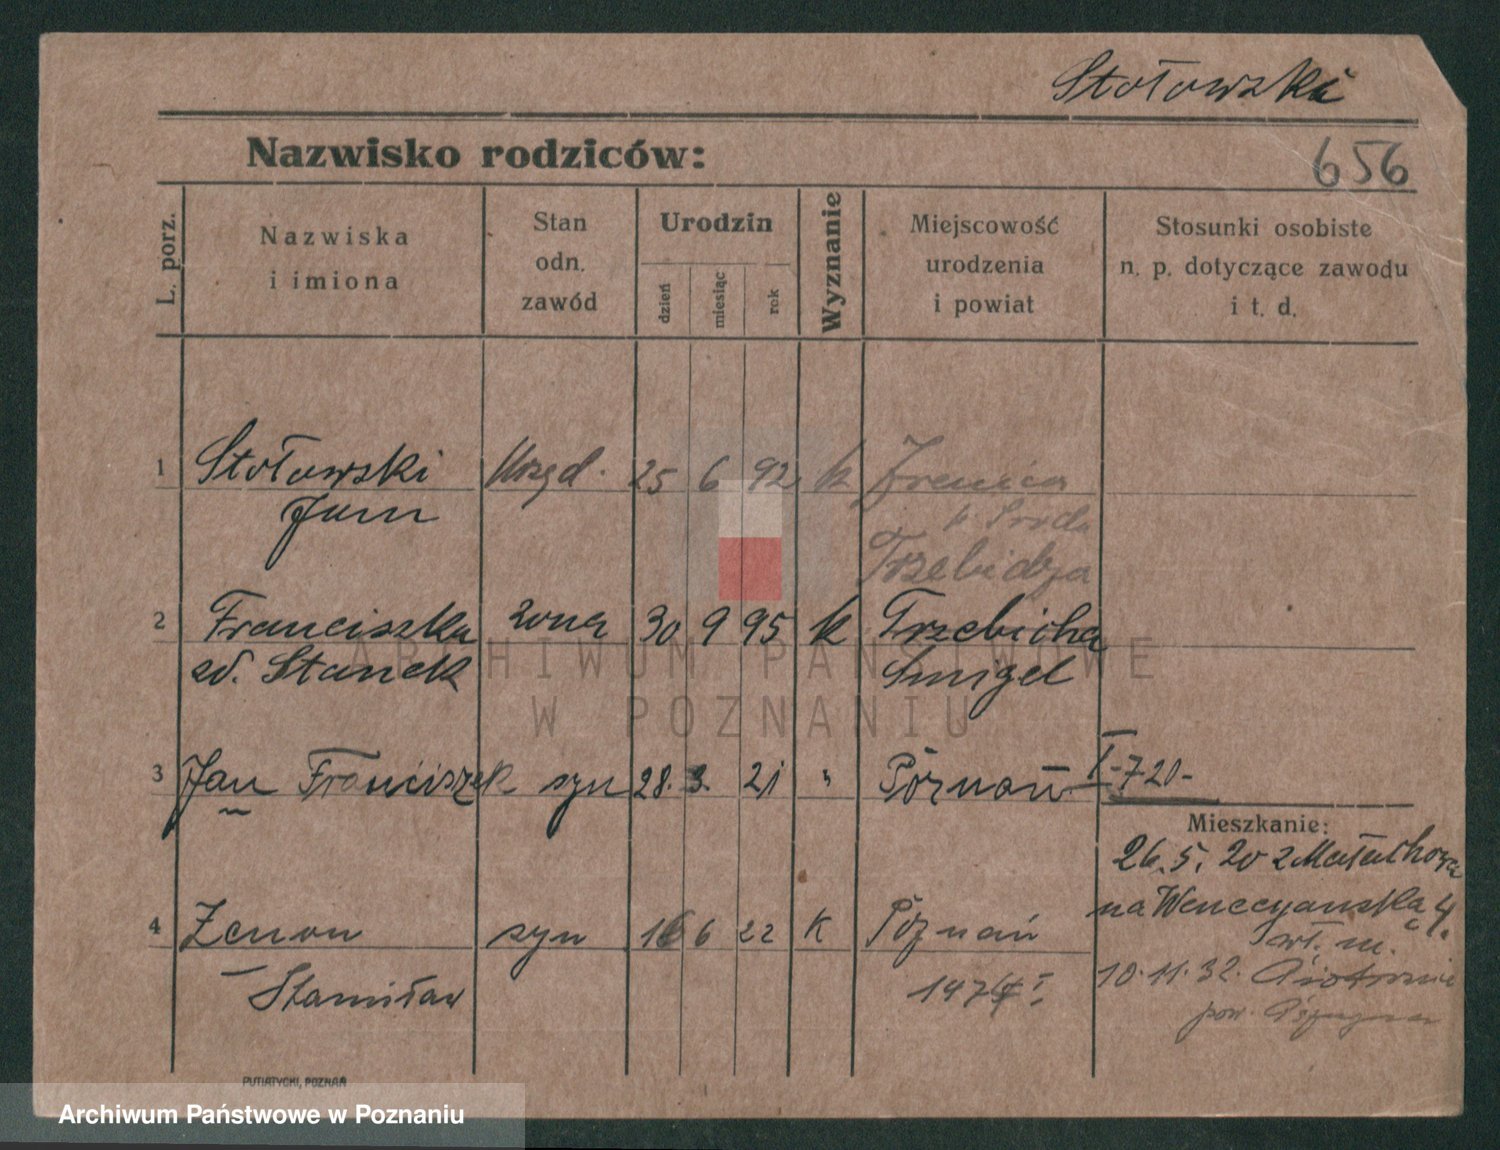 Stołowski
Nazwisko rodziców:
656
L. porz.
Nazwiska
i imiona
Stan
odn.
zawód
Urodzin
dzień
miesiąc
rok
Wyznanie
Miejscowość
urodzenia
i powiat
Stosunki osobiste
n. p. dotyczące zawodu
i t. d.
1 Stołowski Urzęd. 25 6 92 k Źrenica
Jan p. Środa
Trzebidza
2 Franciszka żona 30 9 95 k Trzebicha
zd. Stanek Śmigel
3 Jan Franciszek syn 28. 3. 21 " Poznań I-720-
Mieszkanie:
26.5.20 z Małachows
na Wenecyańska 4.
wł. m.
4 Zenon syn 16 6 22 K Poznań
10.11.32.
Stanisław 1474 I
pow.
PUTIATYCKI, POZNAŃ
ARCHIWUM PAŃSTWOWE
W POZNANIU
Archiwum Państwowe w Poznaniu